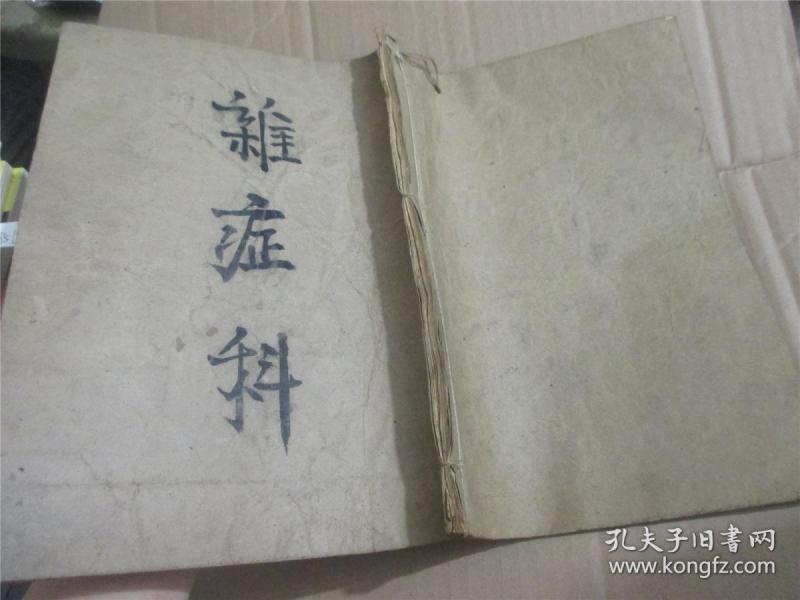 雜症科
孔夫子旧書网
www.kongfz.com